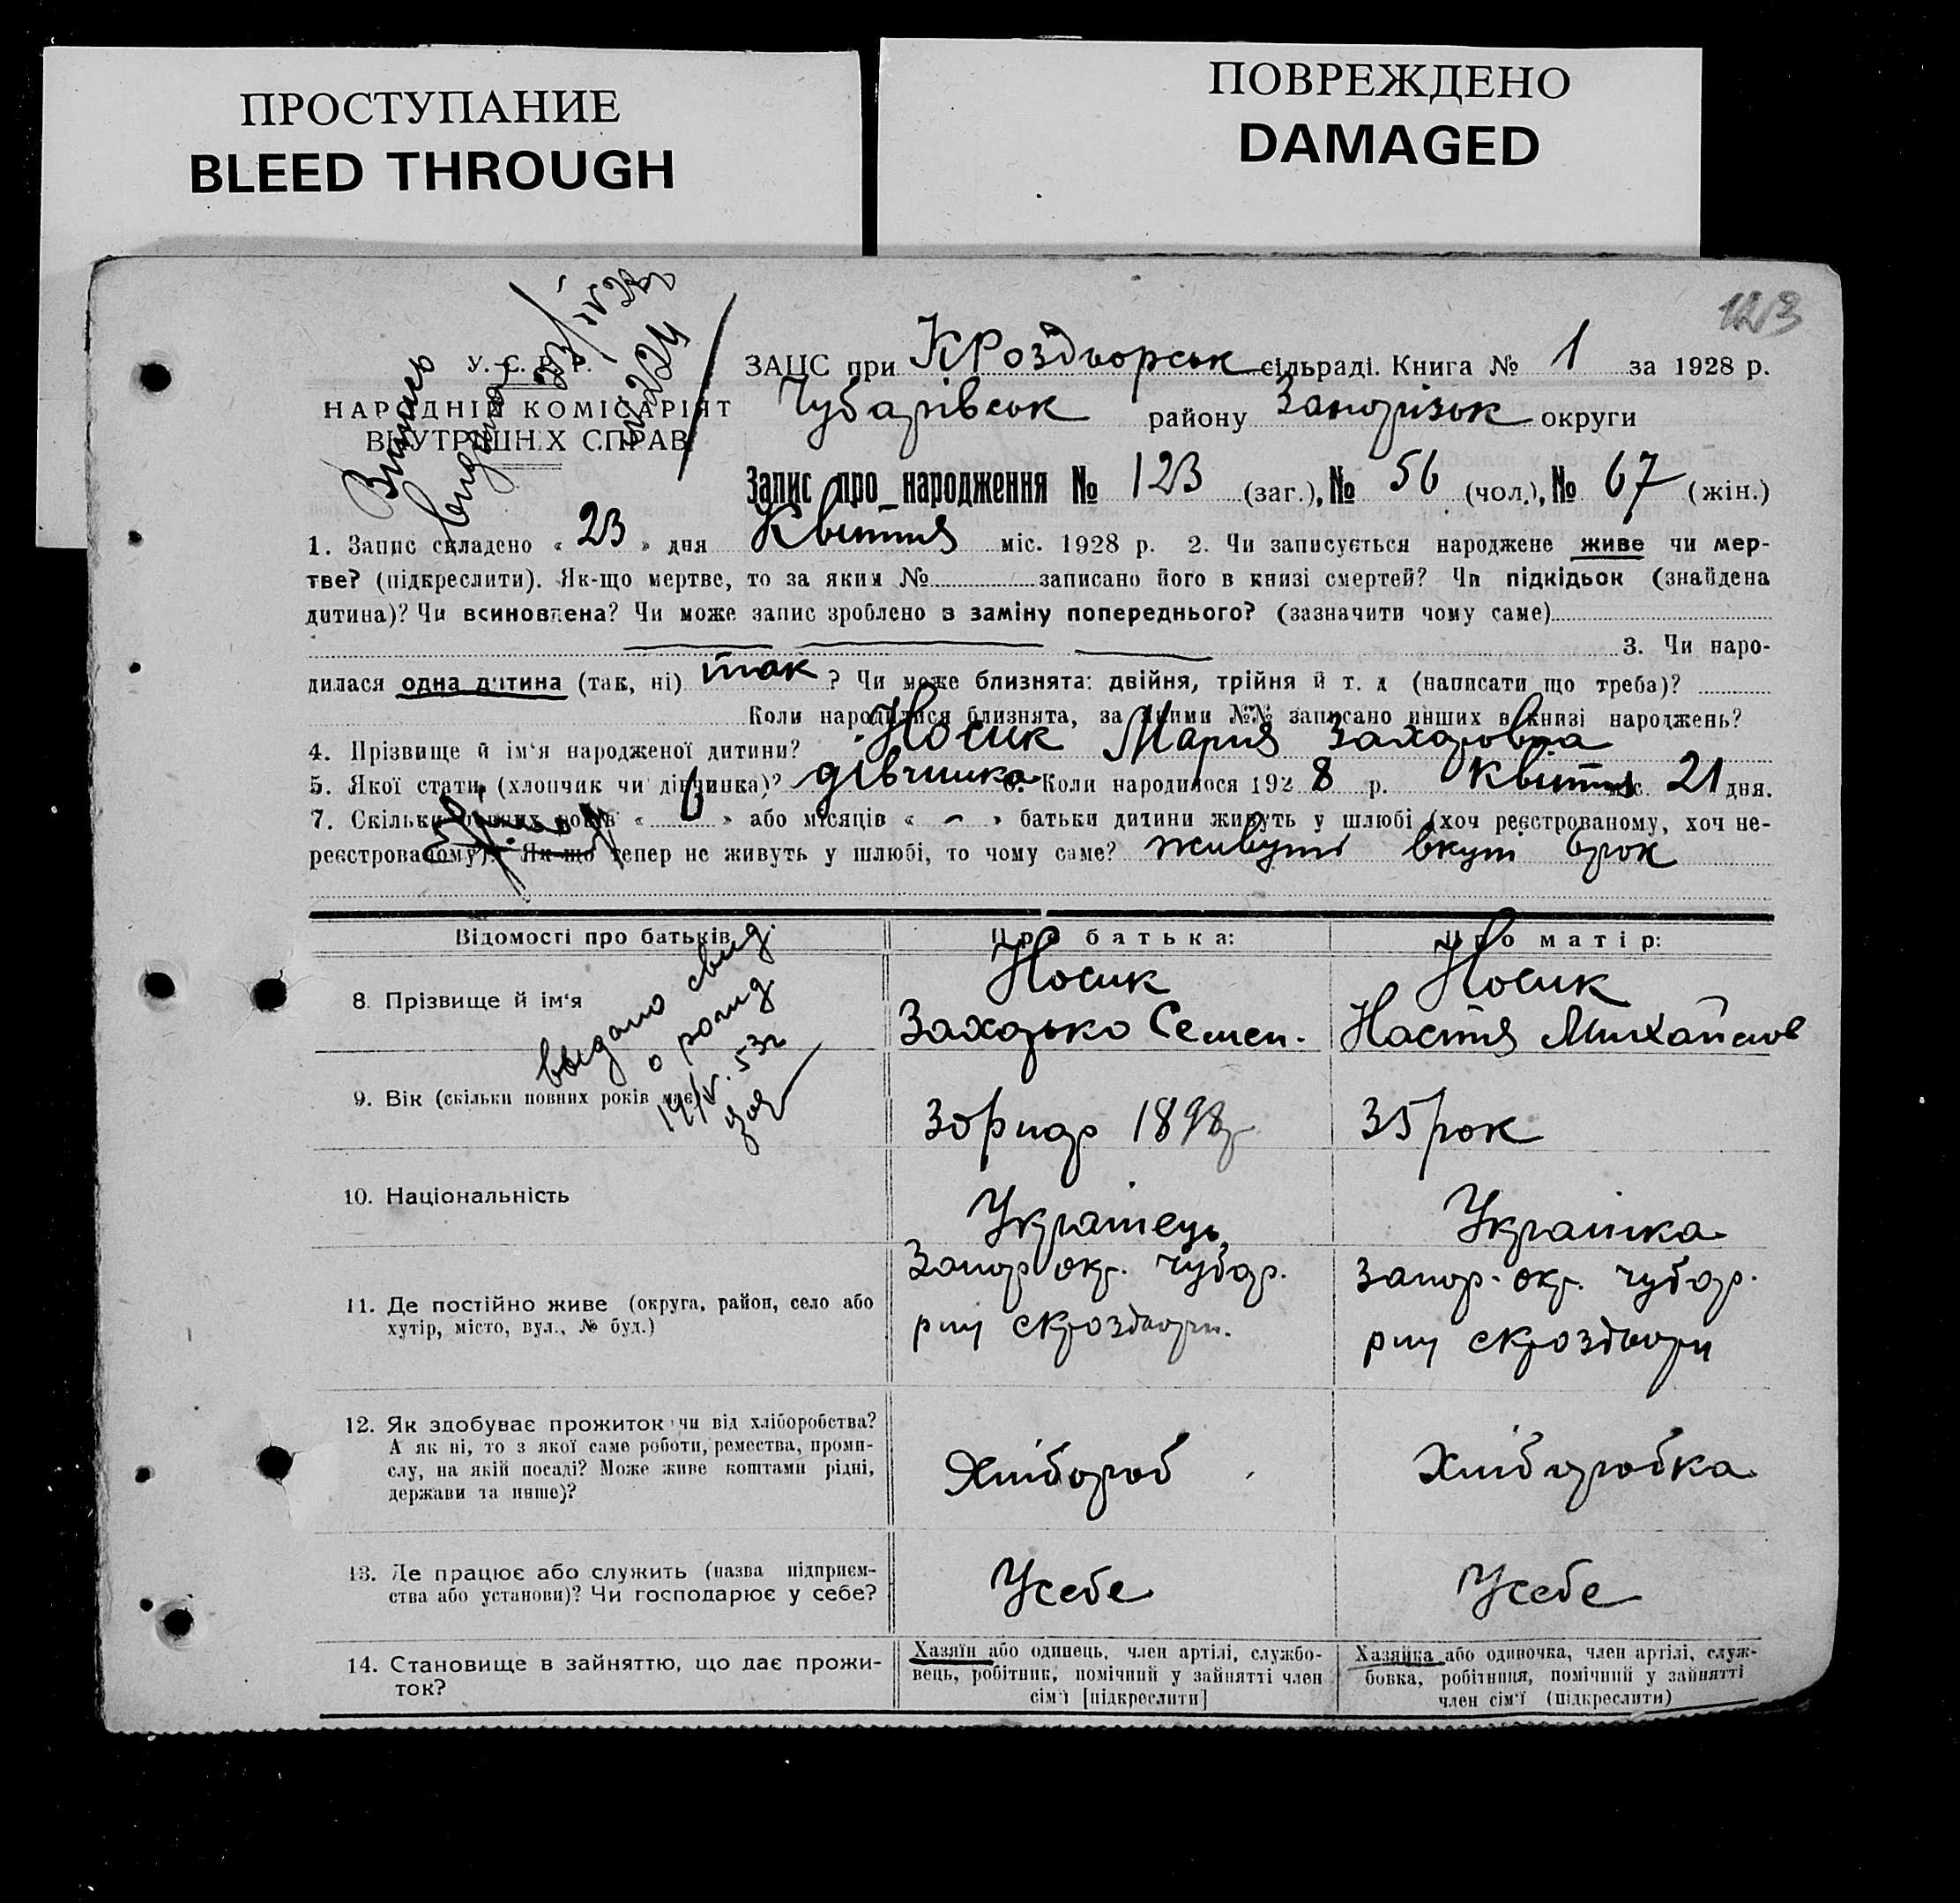 ПРОСТУПАНИЕ
BLEED THROUGH
ПОВРЕЖДЕНО
DAMAGED
123
У. С. Р. Р.
НАРОДНІЙ КОМІСАРІЯТ
ВНУТРІШНІХ СПРАВ
ЗАЦС при КРоздворськ сільраді. Книга № 1 за 1928 р.
Чубарівськ району Запорізьк округи
Запис про народження № 123 (заг.), № 56 (чол.), № 67 (жін.)
1. Запис складено « 23 » дня Квітня міс. 1928 р. 2. Чи записується народжене живе чи мер-
тве? (підкреслити). Як-що мертве, то за яким № записано його в книзі смертей? Чи підкідьок (знайдена
дитина)? Чи всиновлена? Чи може запис зроблено в заміну попереднього? (зазначити чому саме)
3. Чи наро-
дилася одна дитина (так, ні) так ? Чи може близнята: двійня, трійня й т. д (написати що треба)?
Коли народилися близнята, за якими №№ записано инших в книзі народжень?
4. Прізвище й ім‘я народженої дитини? Носик Мария Захаровна
5. Якої стати (хлопчик чи дівчинка)? дівчинка 6. Коли народилося 1928 р. Квітня міс. 21 дня.
7. Скільки повних років « 6 » або місяців « - » батьки дитини живуть у шлюбі (хоч реєстрованому, хоч не-
реєстрованому). Як-що тепер не живуть у шлюбі, то чому саме? живуть вкуп
Відомості про батьків
Про батька:
Про матір:
8. Прізвище й ім‘я
Носик
Захарько Семен.
Носик
Настя Михайлов
выдано свид.
о рожд
19/V. 53г
9. Вік (скільки повних років має)
30 1898
35 рок
10. Національність
Українець
Українка
11. Де постійно живе (округа, район, село або
хутір, місто, вул., № буд.)
Запор окр. чубар.
рну скроздвори.
Запор. окр. чубар.
рну скроздвори
12. Як здобуває прожиток чи від хліборобства?
А як ні, то з якої саме роботи, ремества, проми-
слу, на якій посаді? Може живе коштами рідні,
держави та инше)?
Хлібороб
Хліборобка
13. Де працює або служить (назва підприєм-
ства або установи)? Чи господарює у себе?
Усебе
Усебе
14. Становище в зайняттю, що дає прожи-
ток?
Хазяїн або одинець, член артілі, службо-
вець, робітник, помічний у зайнятті член
сім‘ї [підкреслити]
Хазяйка або одиночка, член артілі, служ-
бовка, робітниця, помічний у зайнятті
член сім‘ї (підкреслити)